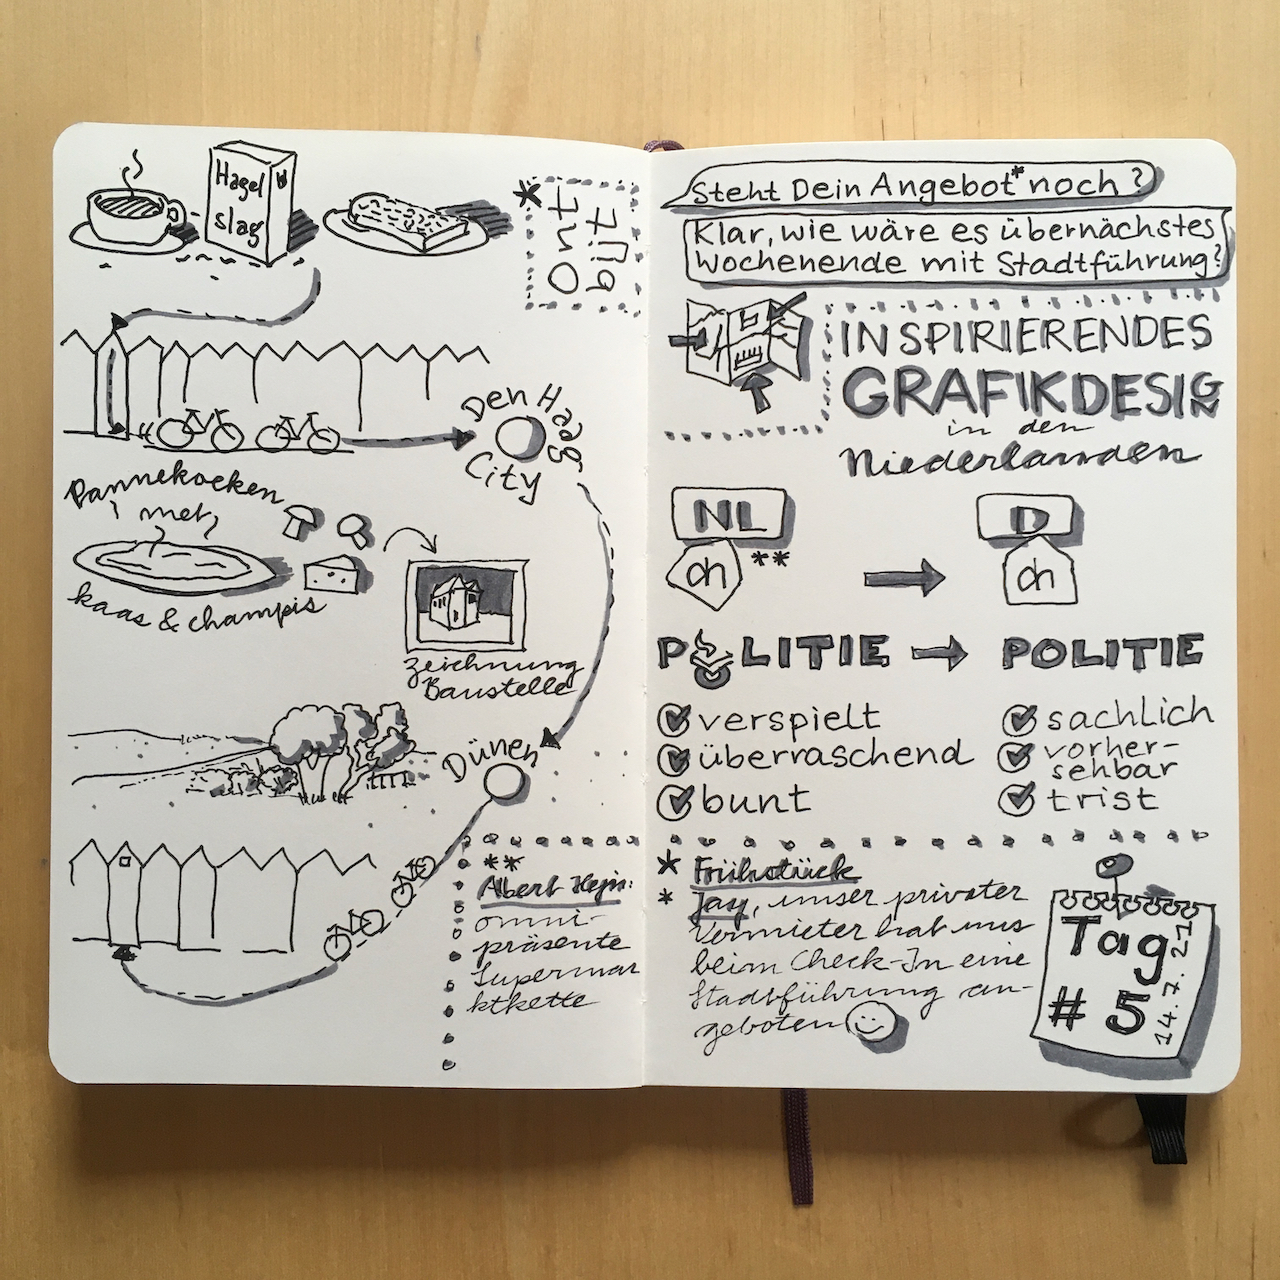 Hagel
slag
*
Ont
bijt
Den Haag
City
Pannekoeken
met
kaas & champis
Zeichnung
Baustelle
Dünen
**
Albert Heijn:
omni-
präsente
Supermar
ktkette
Steht Dein Angebot* noch?
Klar, wie wäre es übernächstes
Wochenende mit Stadtführung?
INSPIRIERENDES
GRAFIKDESIGN
in den
Niederlanden
NL
D
ah **
ah
POLITIE
POLITIE
verspielt
überraschend
bunt
sachlich
vorher-
sehbar
trist
* Frühstück
* Jay, unser privater
Vermieter hat uns
beim Check-In eine
Stadtführung an-
geboten
Tag
# 5
14.7.21